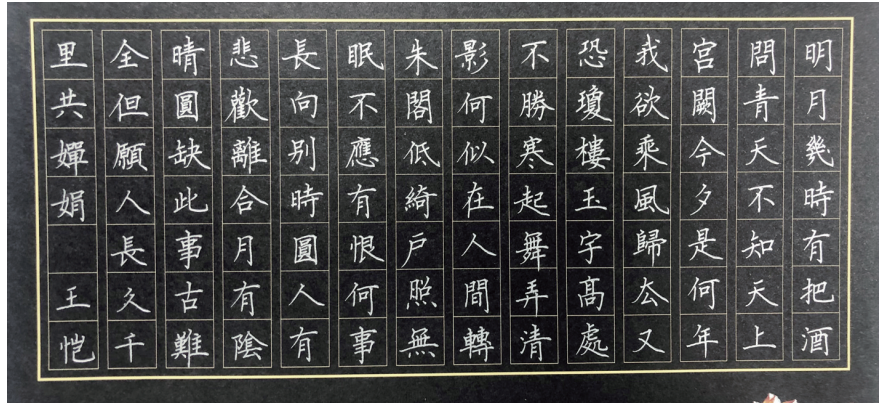 明月幾時有把酒
問青天不知天上
宮闕今夕是何年
我欲乘風歸去又
恐瓊樓玉宇高處
不勝寒起舞弄清
影何似在人間轉
朱閣低綺戶照無
眠不應有恨何事
長向別時圓人有
悲歡離合月有陰
晴圓缺此事古難
全但願人長久千
里共嬋娟 王愷